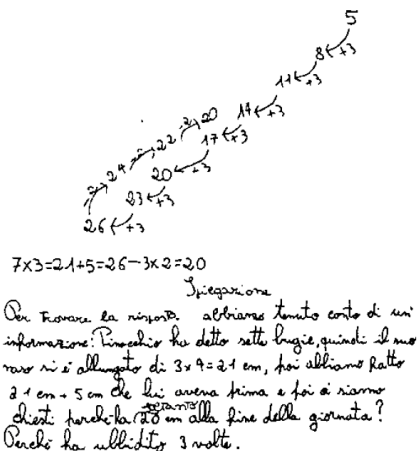 5
8 +3
11 +3
14 +3
-2 20
17 +3
-2 22
20 +3
-2 24
23 +3
26 +3
7x3=21+5=26-3x2=20
Spiegazione
Per trovare la rispost. abbiamo tenuto conto di un'
informazione: Pinocchio ha detto sette bugie, quindi il suo
naso si è allungato di 3x7=21 cm, poi abbiamo fatto
21 cm + 5 cm che lui aveva prima e poi ci siamo
chiesti perché ha soltanto 20 cm alla fine della giornata?
Perché ha ubbidito 3 volte.